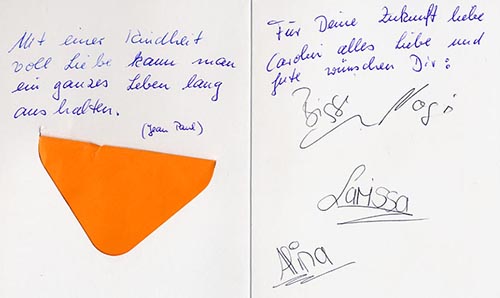 Mit einer Kindheit
voll Liebe kann man
ein ganzes Leben lang
aushalten.
(Jean Paul)
Für Deine Zukunft liebe
Carolin alles Liebe und
Gute wünschen Dir:
Larissa
Alina